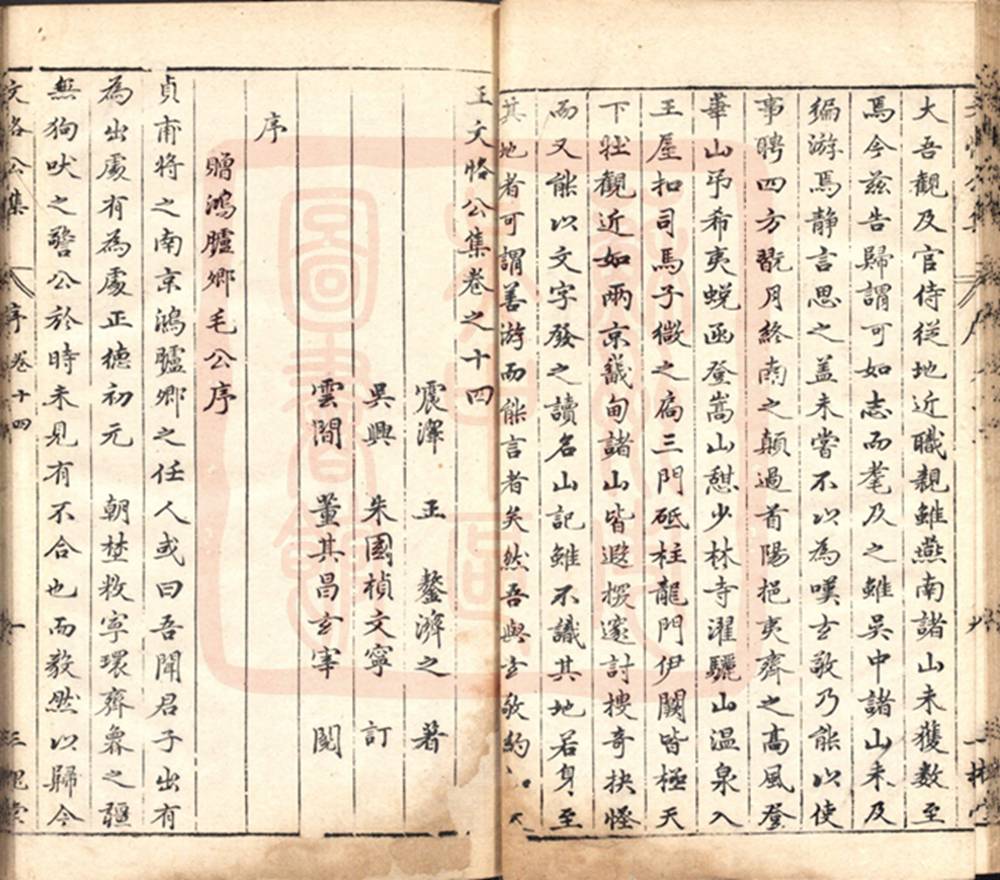 大吾觀及官侍從地近職親雖燕南諸山未獲數至
焉今茲告歸謂可如志而耄及之雖吳中諸山未及
徧游焉靜言思之蓋未嘗不以為嘆玄敬乃能以使
事聘四方翫月終南之顛過首陽挹夷齊之高風登
華山弔希夷蛻函登嵩山憇少林寺濯驪山温泉入
王屋扣司馬子微之扃三門砥柱龍門伊闕皆極天
下壯觀近如兩京畿甸諸山皆遐探邃討搜奇抉怪
而又能以文字發之讀名山記雖不識其地若身至
其地者可謂善游而能言者矣然吾與玄敬約
王文恪公集卷之十四
震澤 王 鏊濟之 著
吳興 朱國楨文寧 訂
雲間 董其昌玄宰 閱
序
贈鴻臚卿毛公序
貞甫將之南京鴻臚卿之任人或曰吾聞君子出有
為出處有為處正德初元 朝埜敉寧環齊魯之疆
無狗吠之警公於時未見有不合也而毅然以歸今
文恪公集 序 卷十四 一 三槐堂